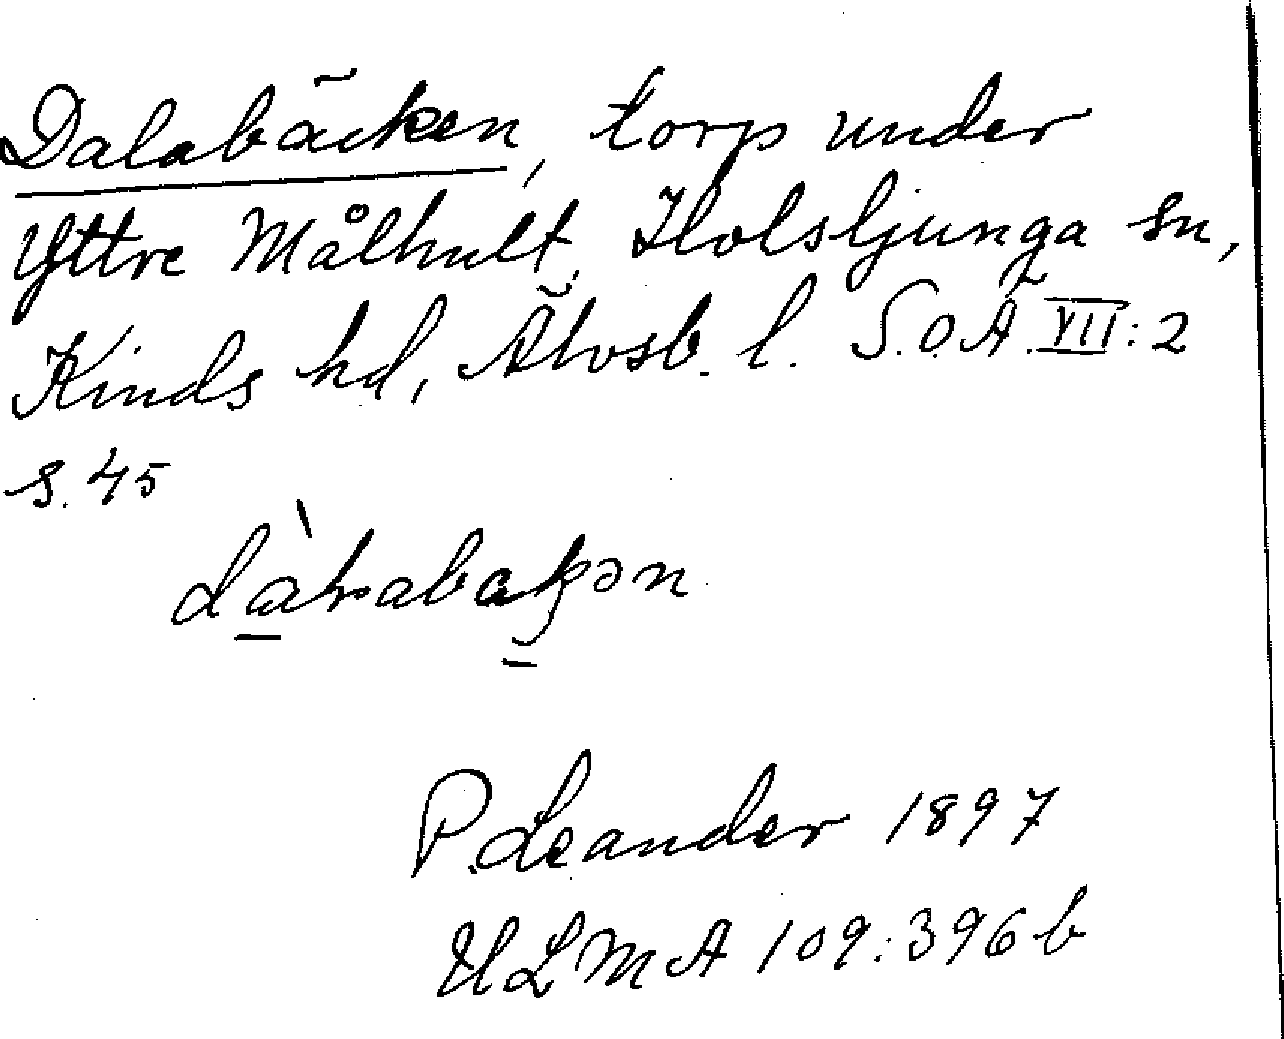 Dalabäcken, torp under
Yttre Målhult, Holsljunga sn,
Kinds hd, Älvsb. l. S.O.Ä. VII:2
s. 45
P. Leander 1897
ULMA 109:396 b